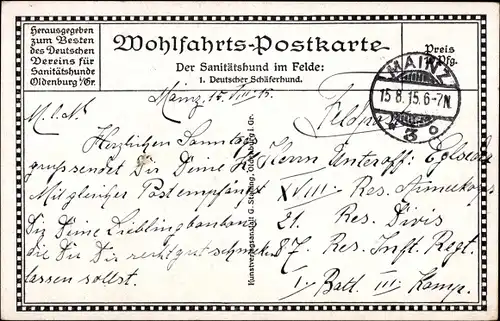 Herausgegeben
zum Besten
des Deutschen
Vereins für
Sanitätshunde
Oldenburg i/Gr.
Wohlfahrts-Postkarte
Der Sanitätshund im Felde:
1. Deutscher Schäferhund.
Preis
Pfg.
MAINZ
15.8.15.6-7N.
* 3 o
Mainz, 15. VIII. 15.
Feldpost
M. l. N!
Herzlichen Sonntags
gruss sendet Dir Deine
Mit gleicher Post empfängst
Du Deine Lieblingbonbons
die Du Dir recht gut schmecken
lassen sollst.
Kunstverlagsanstalt G. Stalling, Oldenburg i. Gr.
Herrn Unteroff:
XVIII. Res. Armeekorps
21. Res. Divis
87. Res. Inft. Regt.
I. Batl. III. Komp.